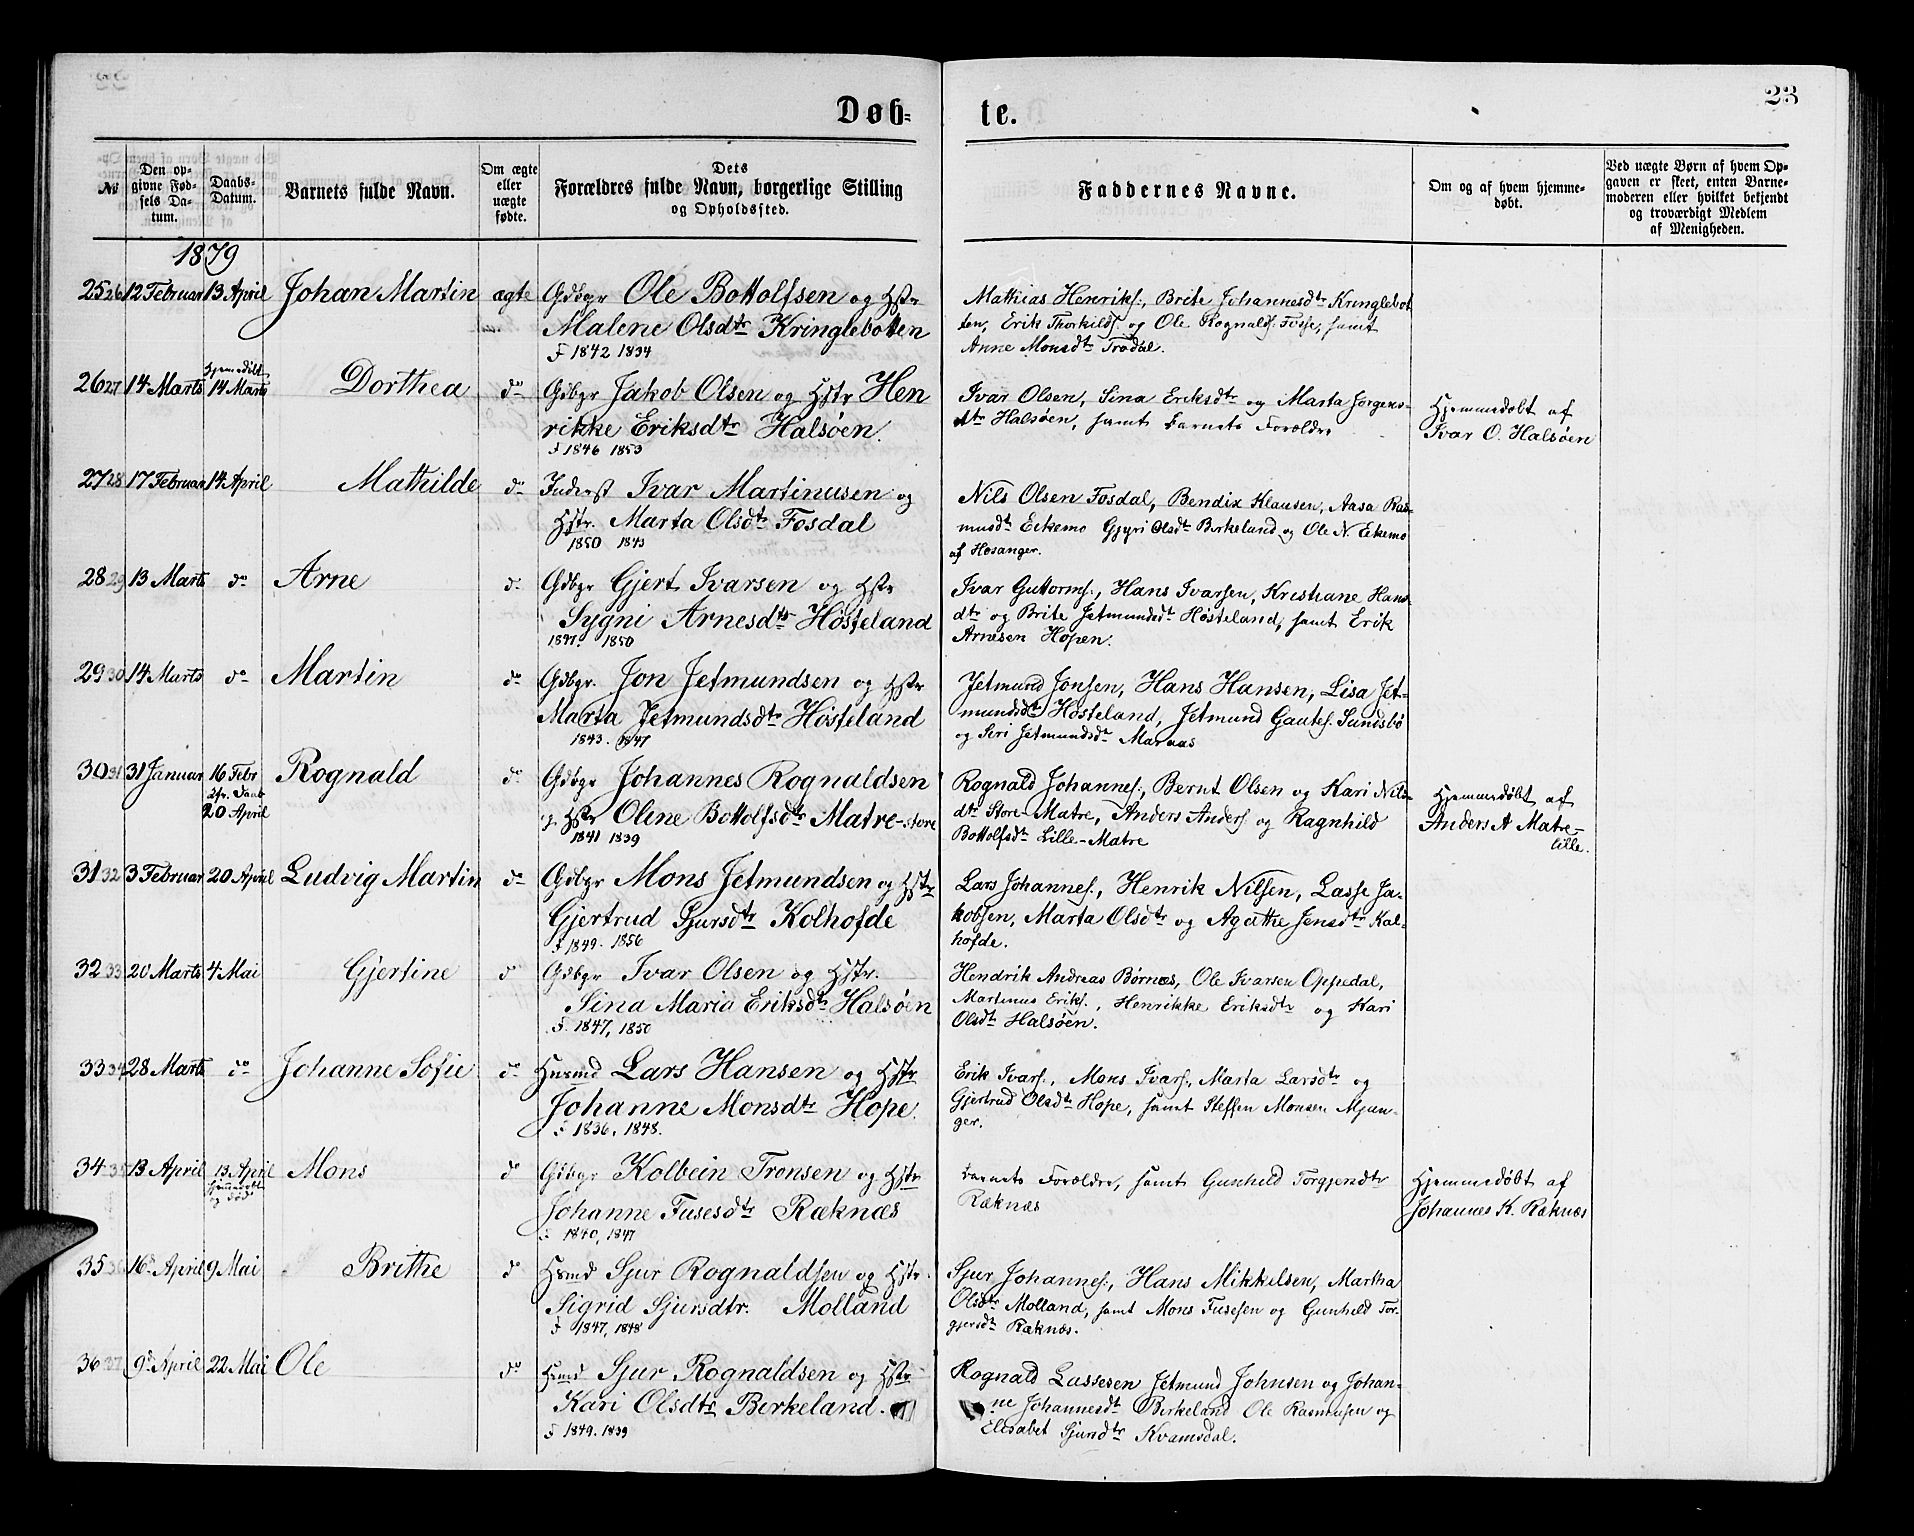 23
Døb- te.
№
Den opgivne Fødsels Datum.
Daabs-Datum.
Barnets fulde Navn.
Om ægte eller uægte fødte.
Dets Forældres fulde Navn, borgerlige Stilling og Opholdssted.
Faddernes Navne.
Om og af hvem hjemmedøbt.
Ved uægte Børn af hvem Opgaven er skeet, enten Barnemoderen eller hvilket bekjendt og troværdigt Medlem af Menigheden.
1879
25 26 12 Februar 13 April Johan Martin ægte Gdbgr Ole Bottolfsen og Hstr
Malene Olsdtr Kringlebotten
F 1842 1834
Mathias Henriks., Brite Johannesdtr Kringlebot
ten, Erik Thorkilds. og Ole Rognalds. Fosse, samt
Anne Monsdtr Trodal.
26 27 14 Marts Hjemmedøbt 14 Marts Dorthea do Gdbgr Jakob Olsen og Hstr Hen
rikke Eriksdtr Halsøen.
F 1846 1853
Ivar Olsen, Sina Eriksdtr og Marta Jørgens-
dtr Halsøen, samt Barnets Forældre
Hjemmedøbt af
Ivar O. Halsøen
27 28 17 Februar 14 April Mathilde do Inderst Ivar Martinusen og
Hstr. Marta Olsdtr Fosdal
1850 1843
Nils Olsen Fosdal, Bendix Klausen, Aasa Ras-
musdt Eekemo Gjyri Olsdtr Birkeland og Ole N. Eekemo
af Hosanger.
28 29 13 Marts do Arne do Gdbgr Gjert Ivarsen og Hstr
Sygni Arnesdtr Høsteland
1847. 1850
Ivar Guttorms., Hans Ivarsen, Kristiane Hans-
dtr og Brite Jetmundsdt Høsteland, samt Erik
Arnesen Hopen.
29 30 14 Marts do Martin do Gdbgr. Jon Jetmundsen og Hstr
Marta Jetmundsdtr Høsteland
1843. 1847
Jetmund Jonsen, Hans Hansen, Lisa Jet-
mundsdt Høsteland, Jetmund Gautes. Sundsbø
og Seri Jetmundsdt Marnas
30 31 31 Januar 16 Febr
2fr. Daab
20 April Rognald do Gdbgr Johannes Rognaldsen
og Hstr Oline Bottolfsdtr Matre-store
1841 1839
Rognald Johannes., Bernt Olsen og Kari Nils-
dtr Store-Matre, Anders Anders. og Ragnhild
Bottolfsdt Lille-Matre
Hjemmedøbt af
Anders A Matre-
lille.
31 32 3 Februar 20 April Ludvig Martin do Gdbgr Mons Jetmundsen og Hstr
Gjertrud Sjursdtr Kolhofde
F 1849. 1856
Lars Johannes., Henrik Nilsen, Lasse Ja-
kobsen, Marta Olsdtr og Agathe Jensdtr Kal-
hofde.
32 33 20 Marts 4 Mai Gjertine do Gdbgr Ivar Olsen og Hstr.
Sina Maria Eriksdtr Halsøen
F. 1847, 1850
Hendrik Andreas Børnæs, Ole Ivarsen Oppedal,
Martinus Eriks., Henrikke Eriksdtr og Kari
Olsdtr Halsøen.
33 34 28 Marts do Johanne Sofie do Husmd Lars Hansen og Hstr
Johanne Monsdtr Hope.
F 1836, 1848.
Erik Ivars., Mons Ivars., Marta Larsdtr og
Gjertrud Olsdtr Hope, samt Steffen Monsen Mjan-
ger.
34 35 13 April 13 April
Hjemmedøbt
og død Mons do Gdbgr Kolbein Tronsen og Hstr
Johanne Fusesdtr Ræknæs
F 1840, 1847
Barnets Forældre, samt Gunhild Torgjersdtr
Ræknæs
Hjemmedøbt af
Johannes K. Ræknæs
35 36 16d April 9 Mai Brithe do Hsmd Sjur Rognaldsen og Hstr.
Sigrid Sjursdtr. Molland
F 1847, 1848
Sjur Johannes., Hans Mikkelsen, Martha
Olsdtr Molland, samt Mons Fusesen og Gunhild Tor-
gjersdt Ræknæs.
36 37 9d April 22 Mai Ole do Hsmd Sjur Rognaldsen og Hstr
Kari Olsdtr Birkeland.
F 1849. 1839
Rognald Lassesen Jetmund Johnsen og Johan-
ne Johannesdt Birkeland Ole Rasmusen og
Elisabet Sjursdtr Kvamsdal.